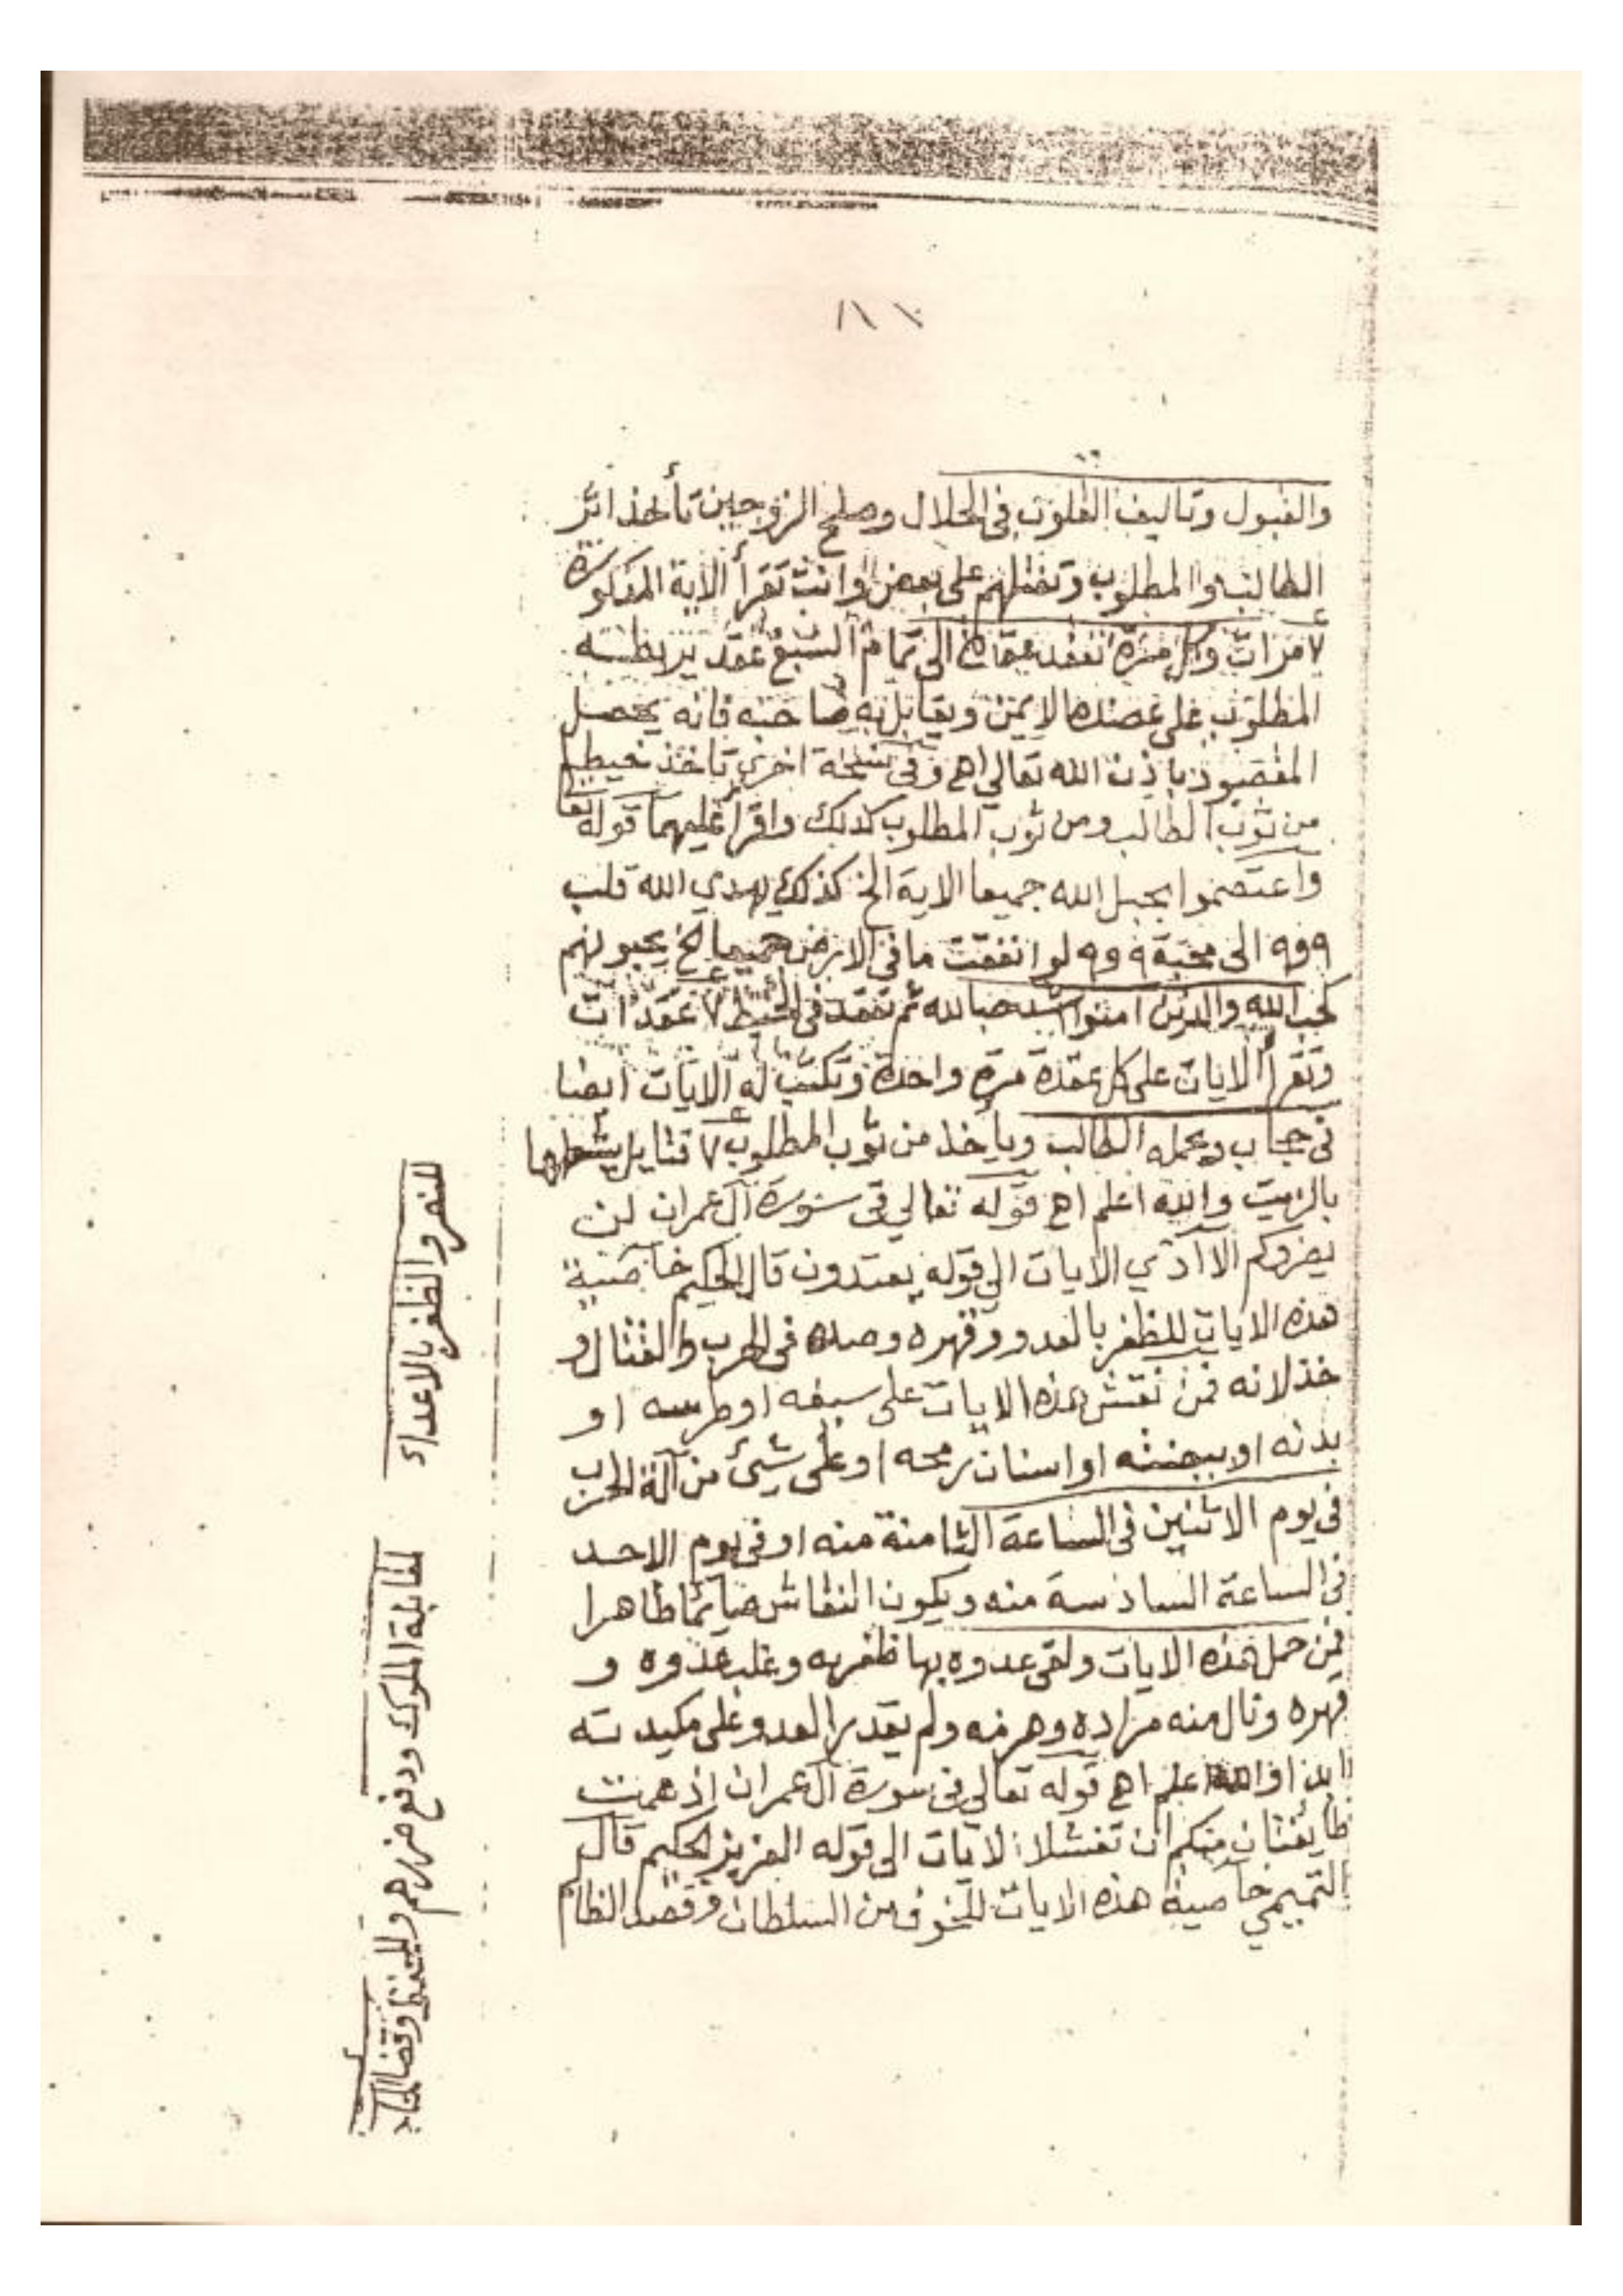 ١١١
والقبول وتاليف القلوب فى الحلال وصلح الزوجين تأخذ اثر
الطالب والمطلوب وتفتلهم على بعض وانت تقرأ الاية المذكورة
٧ مرات وكل مرة تعقد عقدة الى تمام السبع عقد يربطه
المطلوب على عضده الايمن ويقابل به صاحبه فانه يحصل
المقصود باذن الله تعالى اهـ وفى نسخة اخرى تاخذ خيط
من ثوب الطالب ومن ثوب المطلوب كذلك واقرأ عليهما قوله تعا
واعتصموا بحبل الله جميعا الاية الخ كذلك يهدي الله قلب
٩ و ٩ الى محبة ٩ و ٩ لو انفقت ما فى الارض جميعا الخ يحبونهم
كحب الله والذين امنوا اشد حبا لله ثم تعقد فى الخيط ٧ عقدات
وتقرأ الايات على كل عقدة مرة واحدة وتكتب له الايات ايضا
فى حجاب ويحمله الطالب وياخذ من ثوب المطلوب ٧ فتايل يشعلها
بالزيت والله اعلم اهـ قوله تعالى فى سورة آل عمران لن
يضروكم الا أذي الايات الى قوله يعتدون قال الحكيم خاصية
هذه الايات للظفر بالعدو وقهره وصده فى الحرب والقتال و
خذلانه فمن نقش هذه الايات على سيفه او طرسه او
بدنه او بيجنته او اسنان رمحه او على شيئ من آلة الحرب
فى يوم الاثنين فى الساعة الثامنة منه او فى يوم الاحد
فى الساعة السادسة منه ويكون النقاش صائما طاهرا
فمن حمل هذه الايات ولقى عدوه بها ظفر به وغلب عدوه و
قهره ونال منه مراده وهزمه ولم يقدر العدو على مكيدته
ابدا والله اعلم اهـ قوله تعالى فى سورة آل عمران اذ همت
طايفتان منكم ان تفشلا الايات الى قوله العزيز الحكيم قال
التميمي خاصية هذه الايات للخوف من السلطان وقصد الظالم
للنصر والظفر بالاعداء
لمقابلة الملوك ودفع ضررهم وللحفظ وقضا